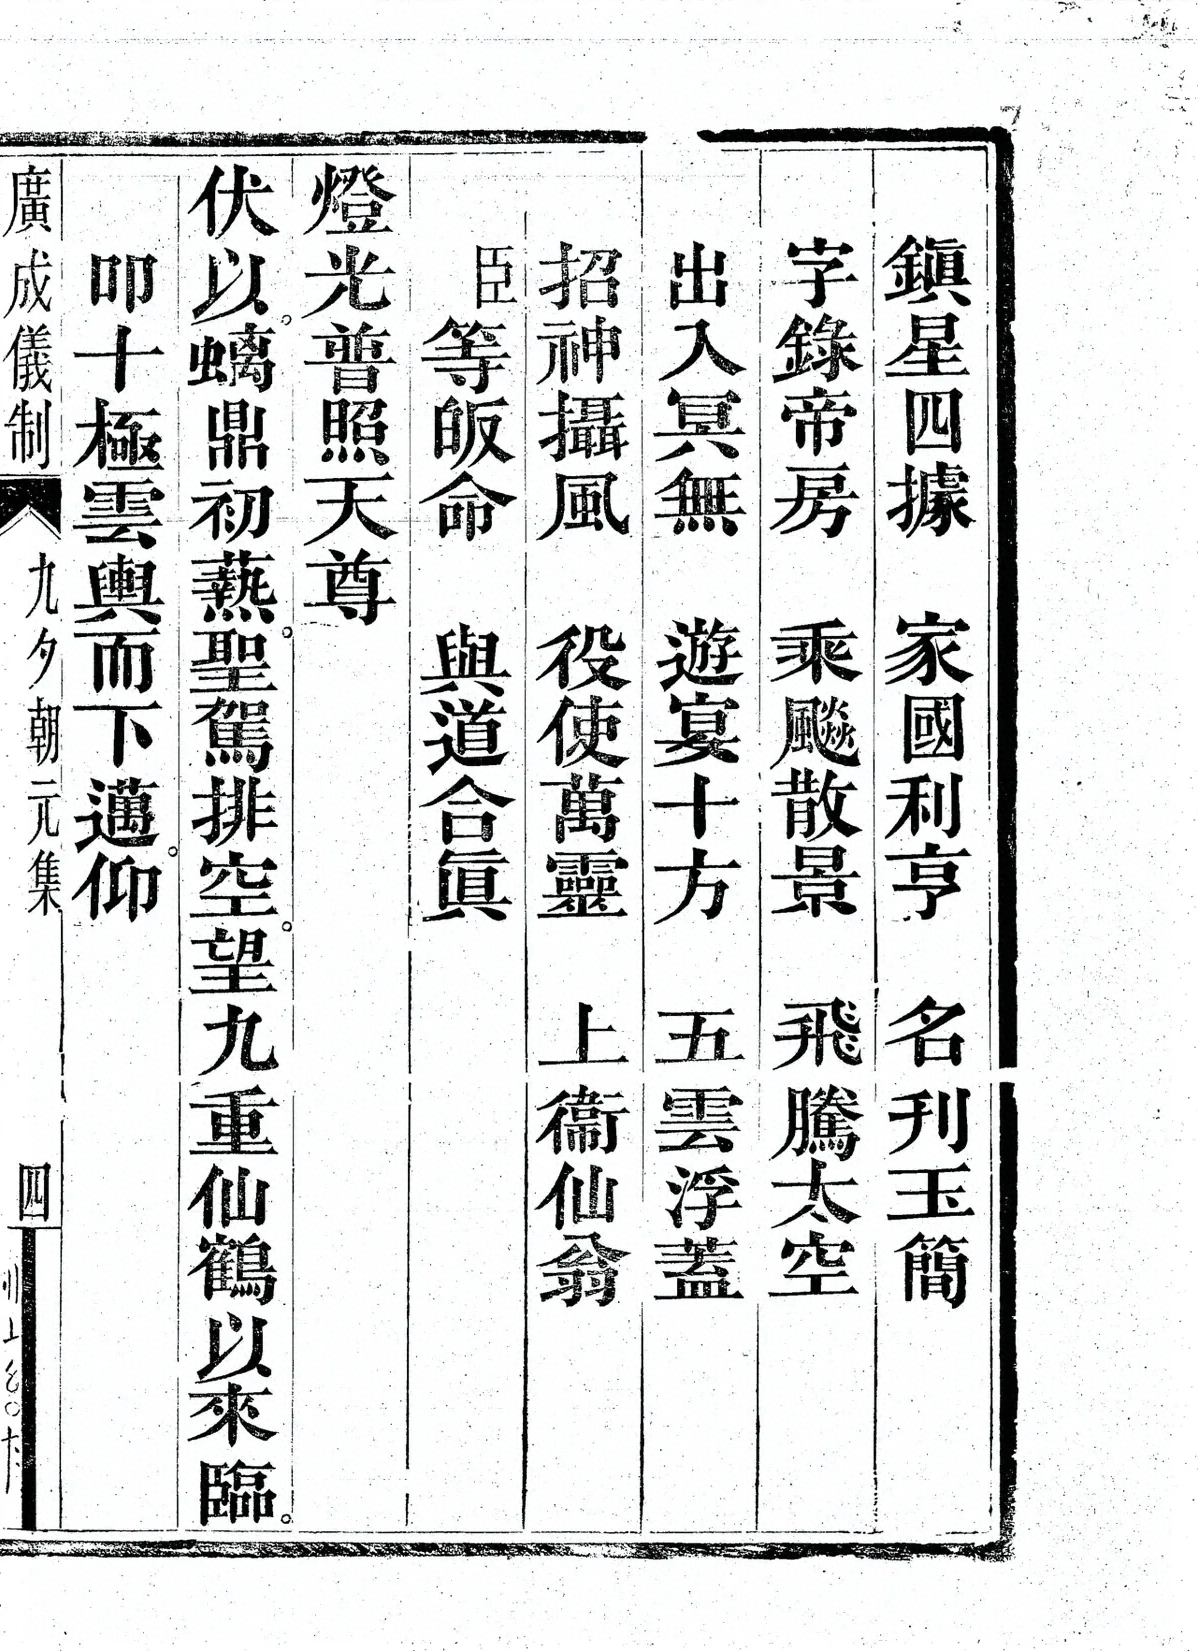 鎭星四據　家國利亨　名刋玉簡
字錄帝房　乘飈散景　飛騰太空
出入冥無　遊宴十方　五雲浮蓋
招神攝風　役使萬靈　上衞仙翁
臣等皈命　與道合眞
燈光普照天尊
伏以。螭鼎初爇。聖駕排空。望九重仙鶴以來臨。
叩十極雲輿而下邁。仰
廣成儀制　九夕朝元集　四